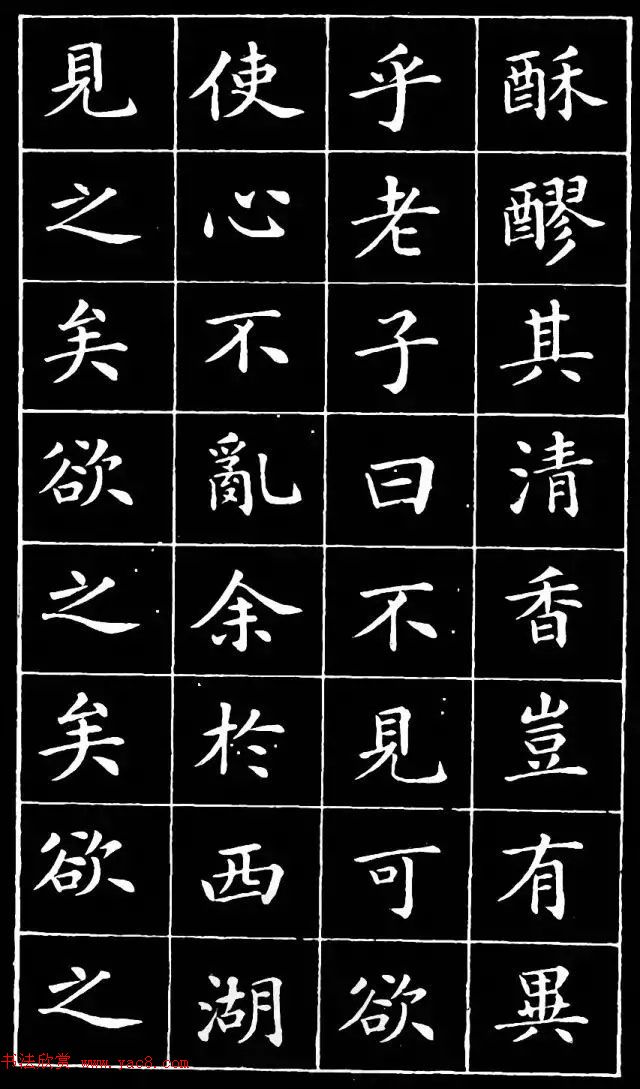 酥醪其清香豈有異
乎老子曰不見可欲
使心不亂余於西湖
見之矣欲之矣欲之
书法欣赏 www.yac8.com